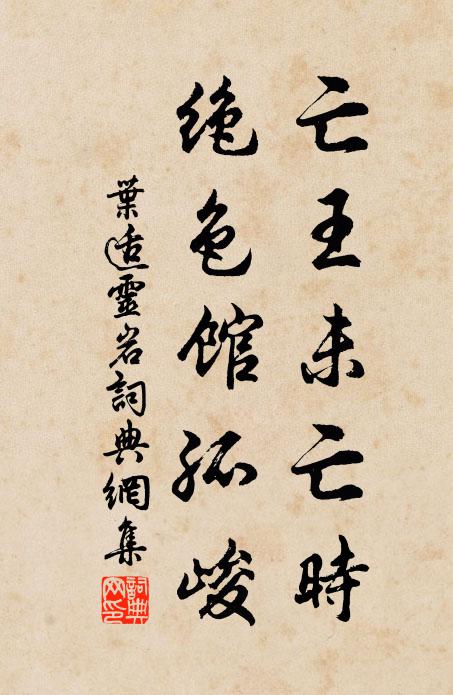 亡王未亡時
絶色館孤峻
葉适靈岩詞典網集
詞典网印